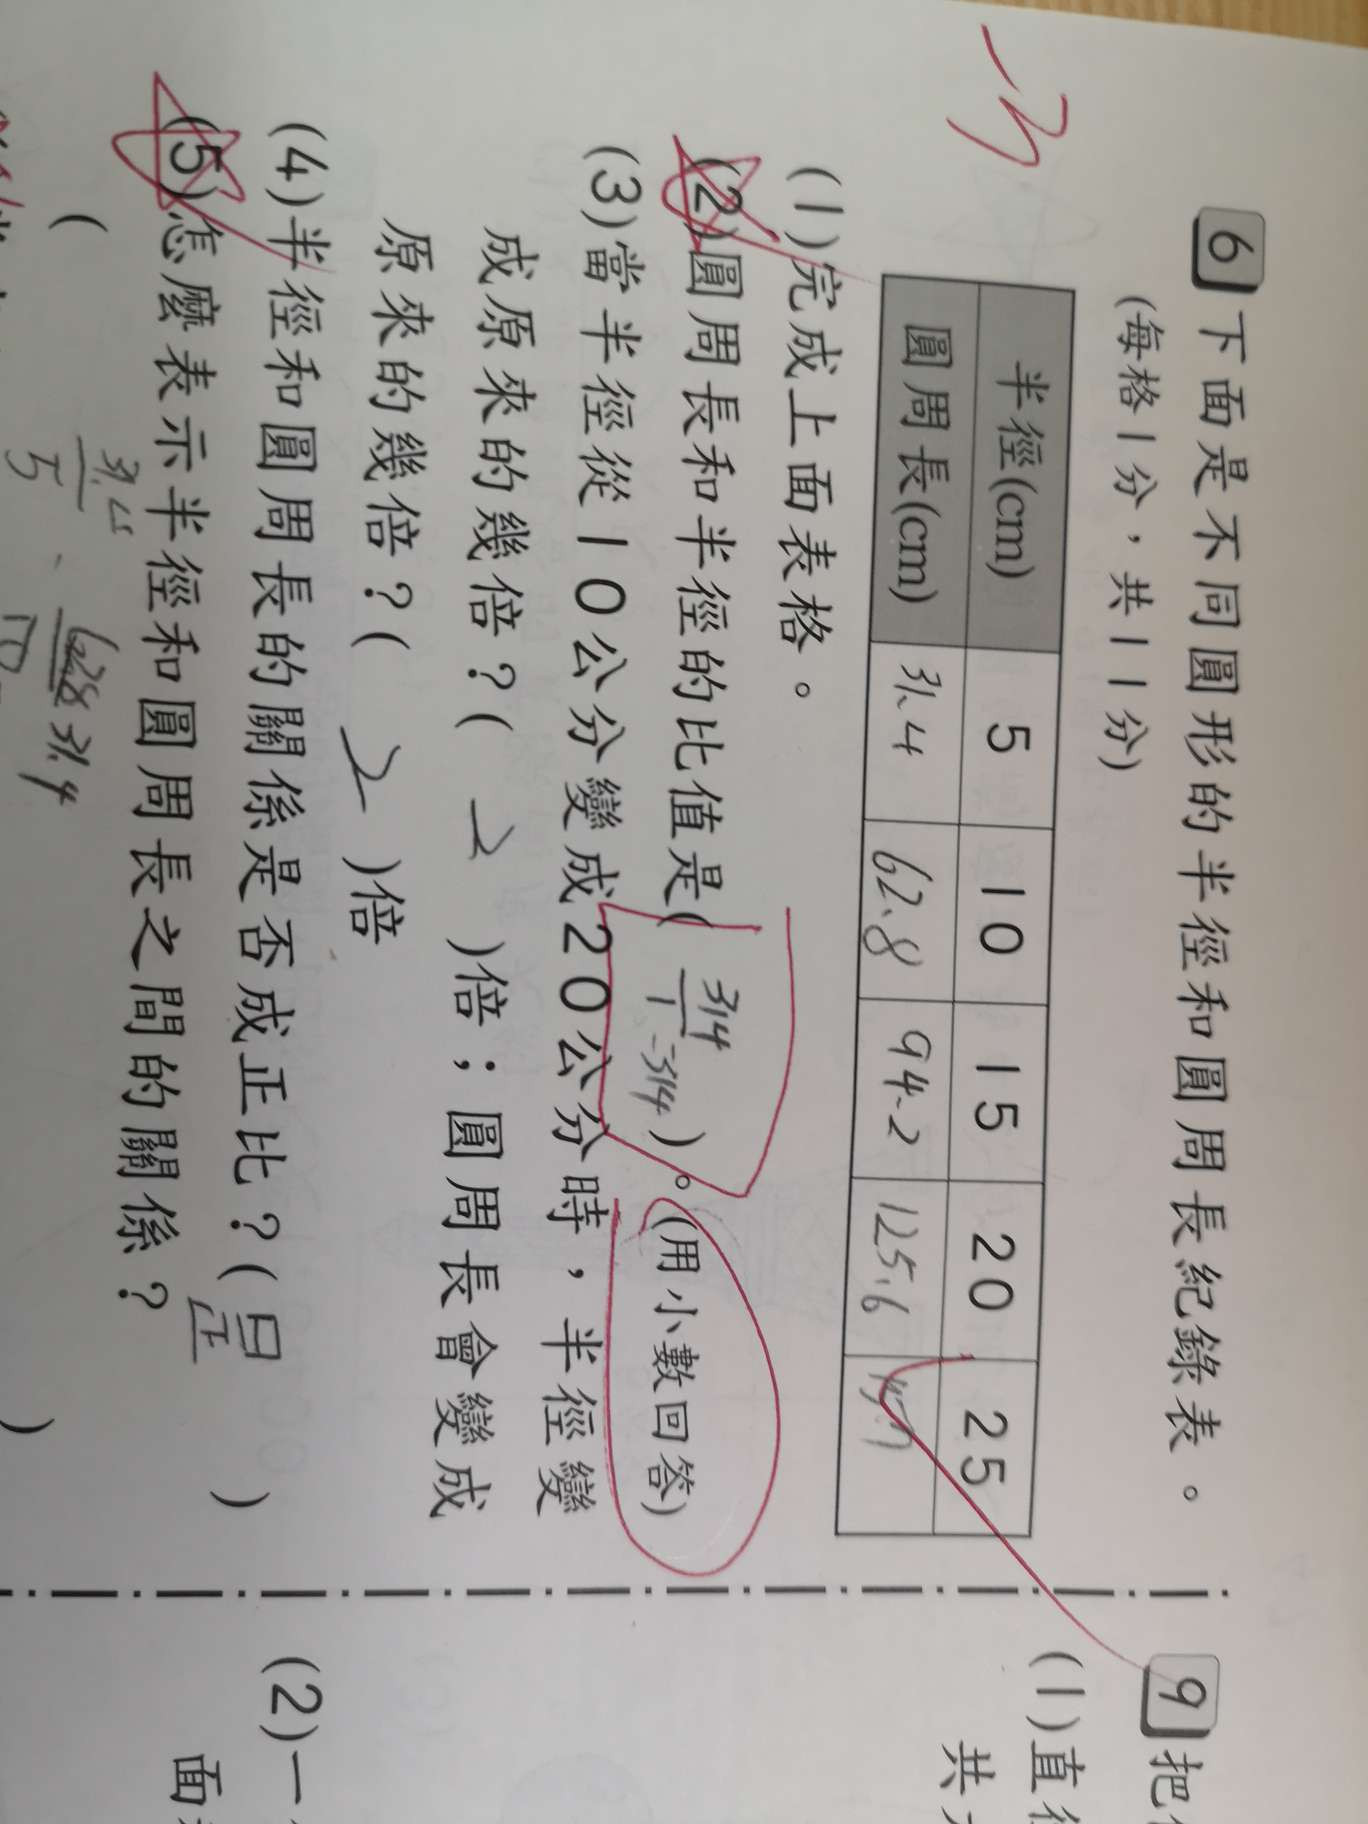 -3
6 下面是不同圓形的半徑和圓周長紀錄表。
(每格1分,共11分)
半徑(cm) 5 10 15 20 25
圓周長(cm) 31.4 62.8 94.2 125.6
(1)完成上面表格。
(2)圓周長和半徑的比值是( 314/1 =314 )。(用小數回答)
(3)當半徑從10公分變成20公分時,半徑變
成原來的幾倍?( 2 )倍;圓周長會變成
原來的幾倍?( 2 )倍
(4)半徑和圓周長的關係是否成正比?( 是 )
(5)怎麼表示半徑和圓周長之間的關係?
( )
31.4/5
628 31.4
9 把
(1)直
共
(2)一
面